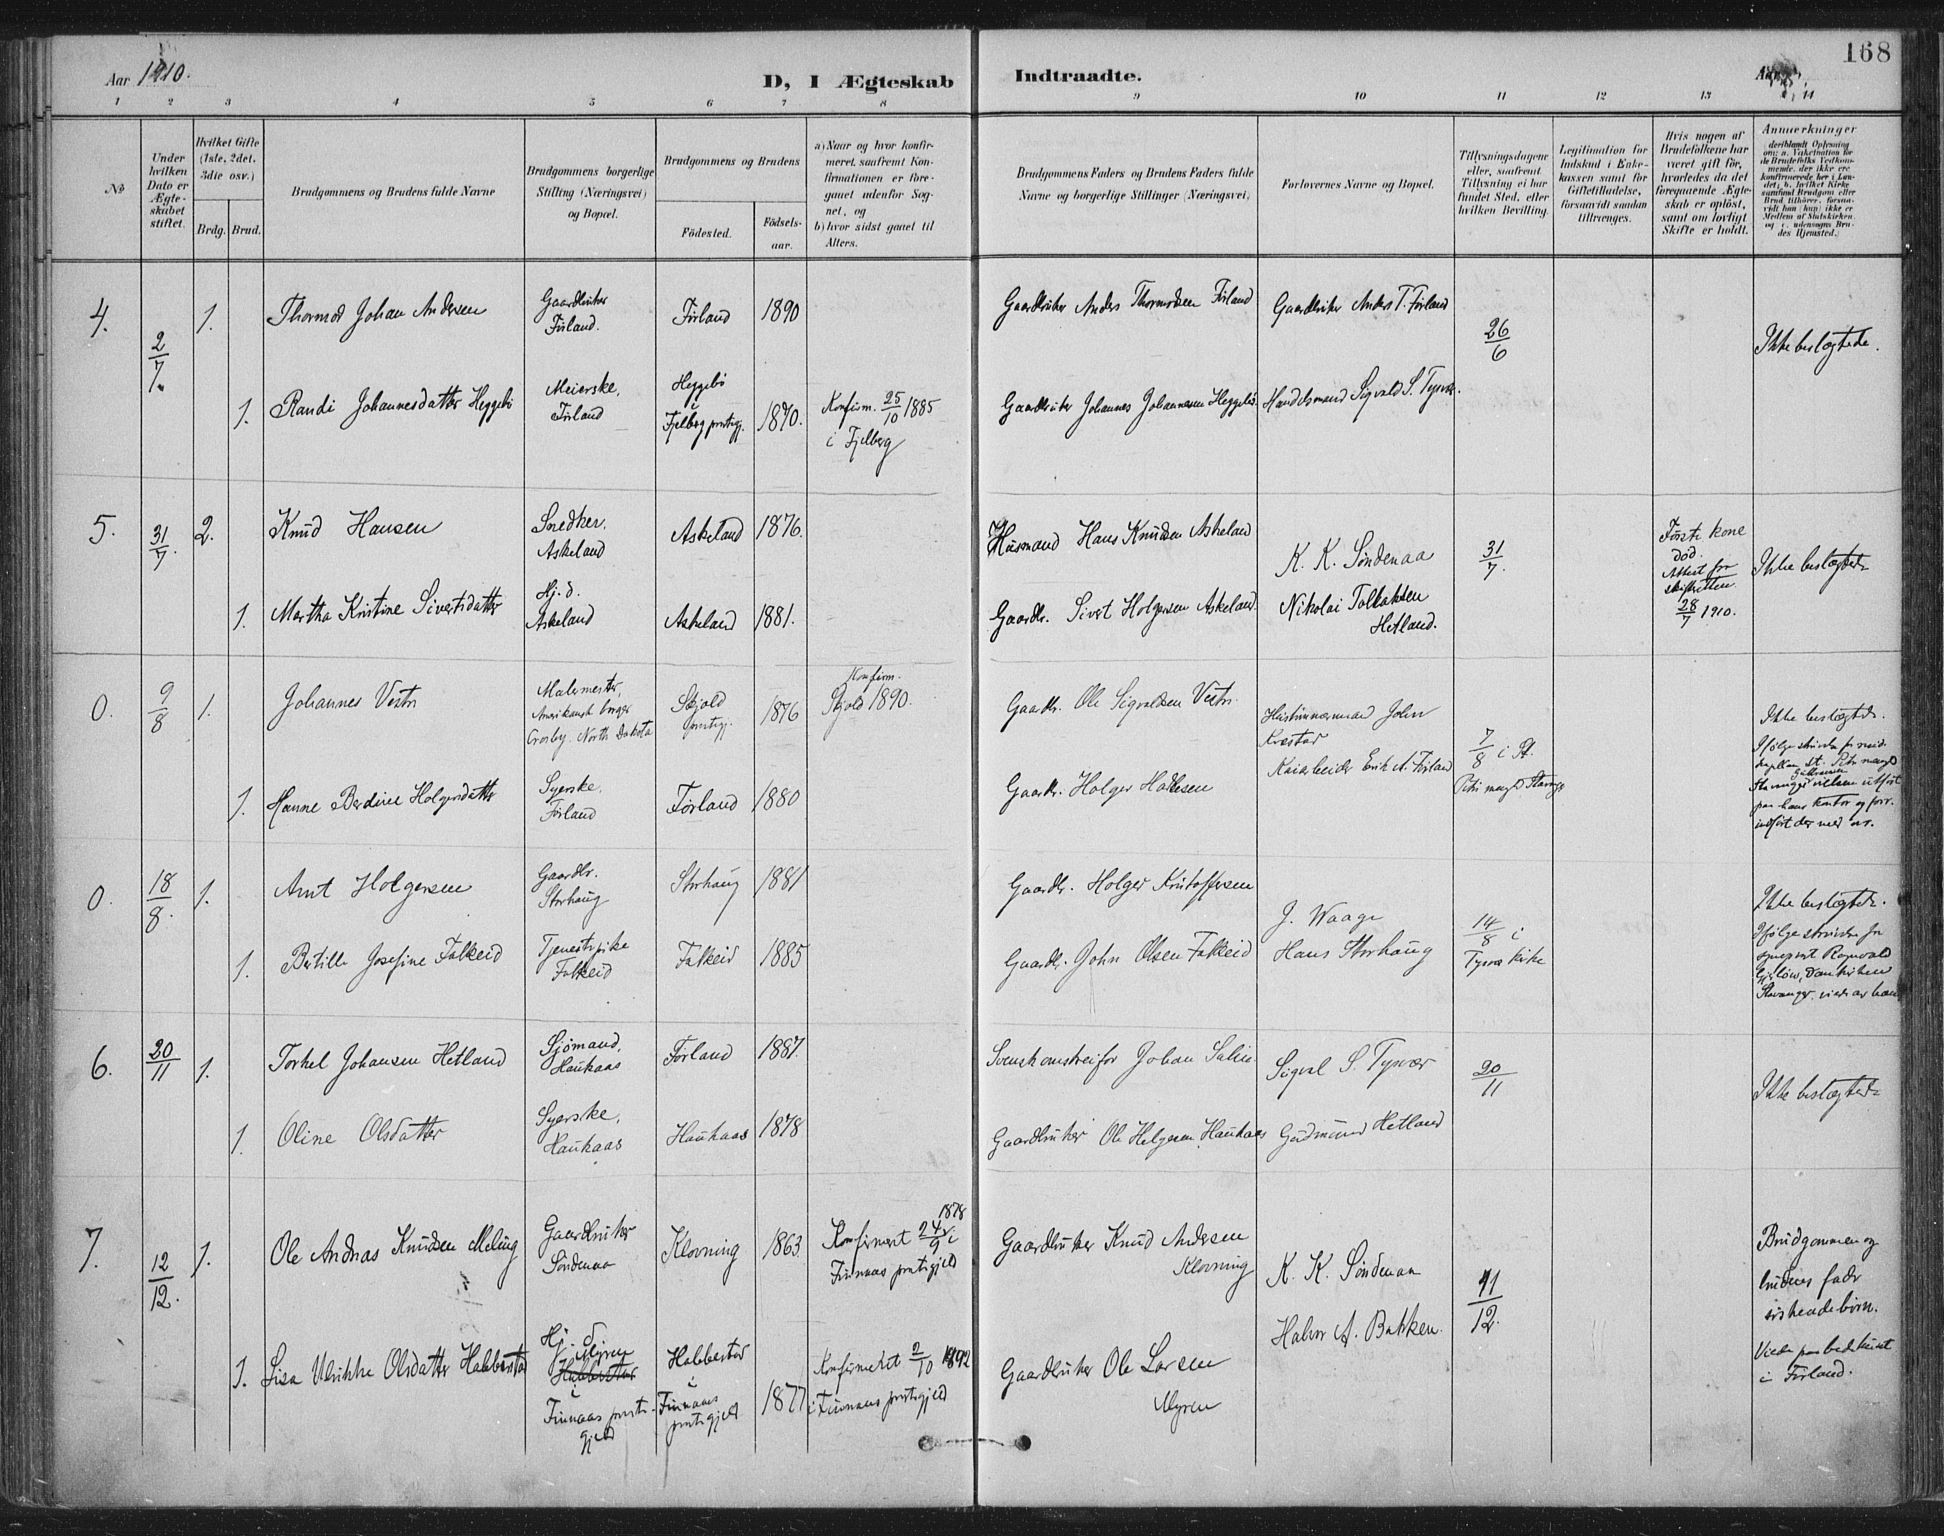 168
Aar 1910.
D, I Ægteskab Indtraadte.
Aar
1 2 3 4 5 6 7 8 9 10 11 12 13 14
No
Under hvilken Dato er Ægteskabet stiftet.
Hvilket Gifte (1ste, 2det, 3die osv.)
Brdg. Brud.
Brudgommens og Brudens fulde Navne
Brudgommens borgerlige Stilling (Næringsvei) og Bopæl.
Brudgommens og Brudens
Födested. Födsels-aar.
a) Naar og hvor konfirmeret, saafremt Konfirmationen er foregaaet udenför Sognet, og
b) hvor sidst gaaet til Alters.
Brudgommens Faders og Brudens Faders fulde Navne og borgerlige Stillinger (Næringsvei)
Forlovernes Navne og Bopæl.
Tillysningsdagene eller, saafremt Tillysning ei har fundet Sted, efter hvilken Bevilling.
Legitimation for Indskud i Enkekassen samt for Giftetilladelse, forsaavidt saadan tiltrænges.
Hvis nogen af Brudefolkene har været gift för, hvorledes da det foregaaende Ægteskab er oplöst, samt om lovligt Skifte er holdt.
Anmærkninger
deriblandt Oplysning om: a. Vakcination for de Brudefolks Vedkommende, der ikke ere konfirmerede her i Landet; b. hvilket Kirkesamfund Brudgom eller Brud tilhörer, forsaavidt han (hun) ikke er Medlem af Statskirken, og c. udensogns Brudes Hjemsted.)
4. 2/7. 1. Thormod Johan Andersen
Gaardbruker Førland.
Førland 1890
Gaardbruker Anders Thormodsen Førland
Gaardbruker Anders T. Førland
26/6
Ikke beslægtede.
1. Randi Johannesdatter Heggebø
Meierske, Førland
Heggebø i Fjelberg prestegj. 1870.
Konfirm. 25/10 1885
i Fjelberg
Gaardbruker Johannes Johannesen Heggebø.
Handelsmand Sigvald S. Tysvær.
5. 31/7. 2. Knud Hansen
Snedker. Askeland
Askeland 1876.
Husmand Hans Knudsen Askeland
K. K. Søndenaa
31/7.
Første kone død.
Attest fra skifteretten 28/7 1910.
Ikke beslægtede
1. Martha Kristine Sivertsdatter
Hj. d. Askeland
Askeland 1881.
Gaardbr. Sivert Holgersen Askeland.
Nikolai Tollaksen Hetland.
0. 9/8 1. Johannes Vestre
Malermester, Amerikansk borger
Crosby, North Dakota
Skjold prestegj. 1876
Konfirm. Skjold 1890.
Gaardbr. Ole Sigvaldsen Vestre.
Hustømmermand John Kvæstad
7/8 i St. Petri mengh. Stavanger
Ikke beslægtede.
1. Hanne Berdine Holgersdatter
Syerske. Førland
Førland 1880
Gaardbr. Holger Halvesen
Kaiarbeider Erik A. Førland
0. 18/8. 1. Arnt Holgersen
Gaardbr. Storhaug
Storhaug 1881
Gaardbr. Holger Kristoffersen
J. Waage
14/8 i Tysvær kirke
Ikke beslægtede.
1. Bertille Josefine Falkeid
Tjenestepike Falkeid
Falkeid 1885
Gaardbr. John Olsen Falkeid
Hans Storhaug
6. 20/11 1. Torkel Johansen Hetland
Sjømand, Haukaas
Førland 1887.
Svensk omstreifer Johan Salin
Sigval S. Tysvær
20/11
Ikke beslægtede
1. Oline Olsdatter
Syerske, Haukaas
Haukaas 1878
Gaardbruker Ole Helgesen Haukaas
Gudmund Hetland
7. 12/12. 1. Ole Andreas Knudsen Meling
Gaardbruker Søndenaa
Klovning 1863
Konfirmert 24/9 1878 i
Finnaas prestegjeld
Gaardbruker Knud Andersen Klovning
K. K. Søndenaa
11/12.
Brudgommen og brudens fader søskendebørn.
1. Lisa Ulrikke Olsdatter Habbestad
Hj. d. Myren
Habbestad
i Finnaas prestegjeld
Habbestad i Finnaas prestegjeld 1877
Konfirmeret 2/10 1892
i Finnaas prestegjeld
Gaardbruker Ole Larsen Myren
Halvor A. Bakken.
Viede paa bedehuset i Førland.